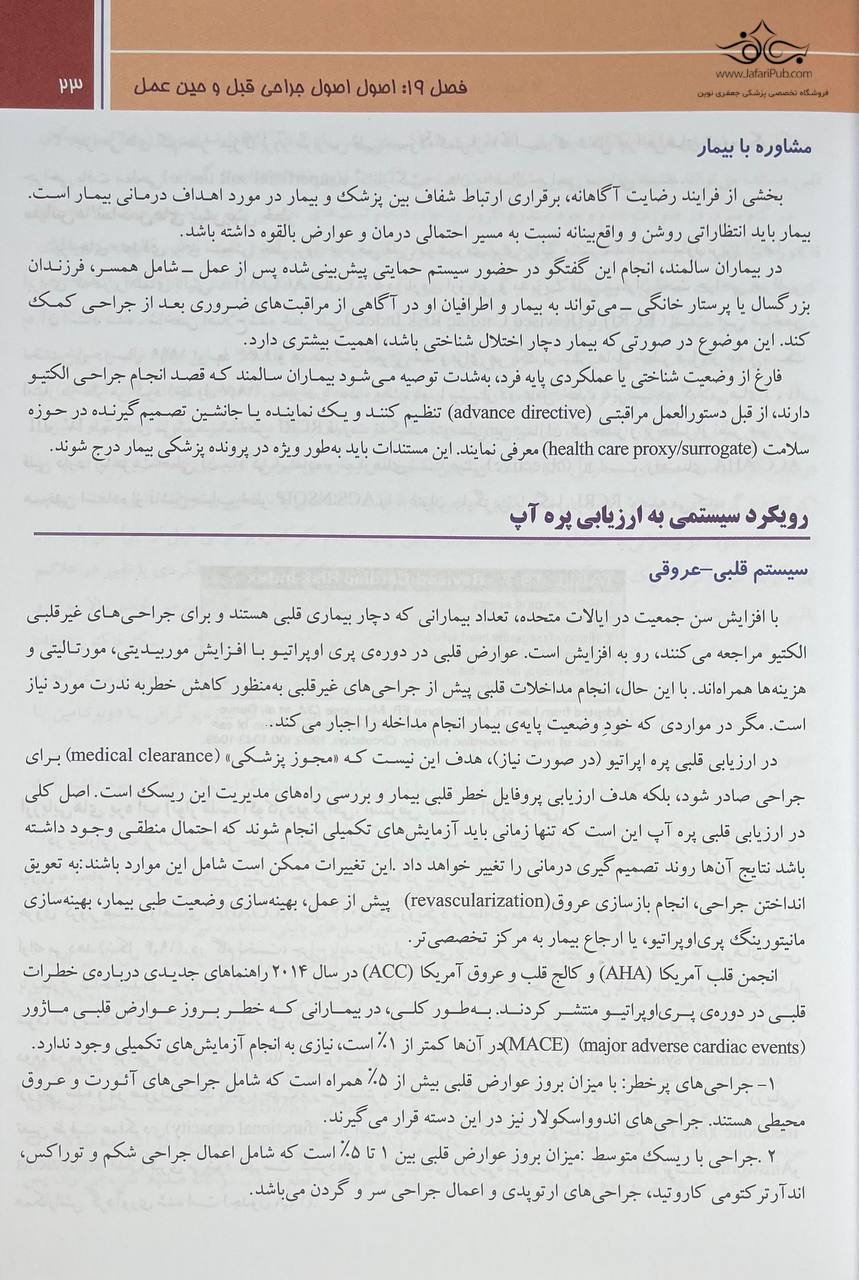 www.JafariPub.com
فروشگاه تخصصی پزشکی جعفری نوین
فصل ۱۹: اصول اصول جراحی قبل و حین عمل
۲۳
مشاوره با بیمار
بخشی از فرایند رضایت آگاهانه، برقراری ارتباط شفاف بین پزشک و بیمار در مورد اهداف درمانی بیمار است.
بیمار باید انتظاراتی روشن و واقع‌بینانه نسبت به مسیر احتمالی درمان و عوارض بالقوه داشته باشد.
در بیماران سالمند، انجام این گفتگو در حضور سیستم حمایتی پیش‌بینی‌شده پس از عمل ــ شامل همسر، فرزندان
بزرگسال یا پرستار خانگی ــ می‌تواند به بیمار و اطرافیان او در آگاهی از مراقبت‌های ضروری بعد از جراحی کمک
کند. این موضوع در صورتی‌که بیمار دچار اختلال شناختی باشد، اهمیت بیشتری دارد.
فارغ از وضعیت شناختی یا عملکردی پایه فرد، به‌شدت توصیه می‌شود بیماران سالمند که قصد انجام جراحی الکتیو
دارند، از قبل دستورالعمل مراقبتی (advance directive) تنظیم کنند و یک نماینده یا جانشین تصمیم‌گیرنده در حوزه
سلامت (health care proxy/surrogate) معرفی نمایند. این مستندات باید به‌طور ویژه در پرونده پزشکی بیمار درج شوند.
رویکرد سیستمی به ارزیابی پره آپ
سیستم قلبی–عروقی
با افزایش سن جمعیت در ایالات متحده، تعداد بیمارانی که دچار بیماری قلبی هستند و برای جراحی‌های غیرقلبی
الکتیو مراجعه می‌کنند، رو به افزایش است. عوارض قلبی در دوره‌ی پری اوپراتیو با افزایش موربیدیتی، مورتالیتی و
هزینه‌ها همراه‌اند. با این حال، انجام مداخلات قلبی پیش از جراحی‌های غیرقلبی به‌منظور کاهش خطربه ندرت مورد نیاز
است. مگر در مواردی که خودِ وضعیت پایه‌ی بیمار انجام مداخله را اجبار می‌کند.
در ارزیابی قلبی پره اپراتیو (در صورت نیاز)، هدف این نیست که «مجوز پزشکی» (medical clearance) برای
جراحی صادر شود، بلکه هدف ارزیابی پروفایل خطر قلبی بیمار و بررسی راه‌های مدیریت این ریسک است. اصل کلی
در ارزیابی قلبی پره آپ این است که تنها زمانی باید آزمایش‌های تکمیلی انجام شوند که احتمال منطقی وجود داشته
باشد نتایج آن‌ها روند تصمیم‌گیری درمانی را تغییر خواهد داد .این تغییرات ممکن است شامل این موارد باشند:به تعویق
انداختن جراحی، انجام بازسازی عروق(revascularization) پیش از عمل، بهینه‌سازی وضعیت طبی بیمار، بهینه‌سازی
مانیتورینگ پری‌اوپراتیو، یا ارجاع بیمار به مرکز تخصصی‌تر.
انجمن قلب آمریکا (AHA) و کالج قلب و عروق آمریکا (ACC) در سال ۲۰۱۴ راهنماهای جدیدی درباره‌ی خطرات
قلبی در دوره‌ی پری‌اوپراتیو منتشر کردند. به‌طور کلی، در بیمارانی که خطر بروز عوارض قلبی ماژور
(major adverse cardiac events) (MACE)در آن‌ها کمتر از ۱٪ است، نیازی به انجام آزمایش‌های تکمیلی وجود ندارد.
۱- جراحی‌های پرخطر: با میزان بروز عوارض قلبی بیش از ۵٪ همراه است که شامل جراحی‌های آئورت و عروق
محیطی هستند. جراحی‌های اندوواسکولار نیز در این دسته قرار می‌گیرند.
۲ .جراحی با ریسک متوسط :میزان بروز عوارض قلبی بین ۱ تا ۵٪ است که شامل اعمال جراحی شکم و توراکس،
اندآرترکتومی کاروتید، جراحی‌های ارتوپدی و اعمال جراحی سر و گردن می‌باشد.